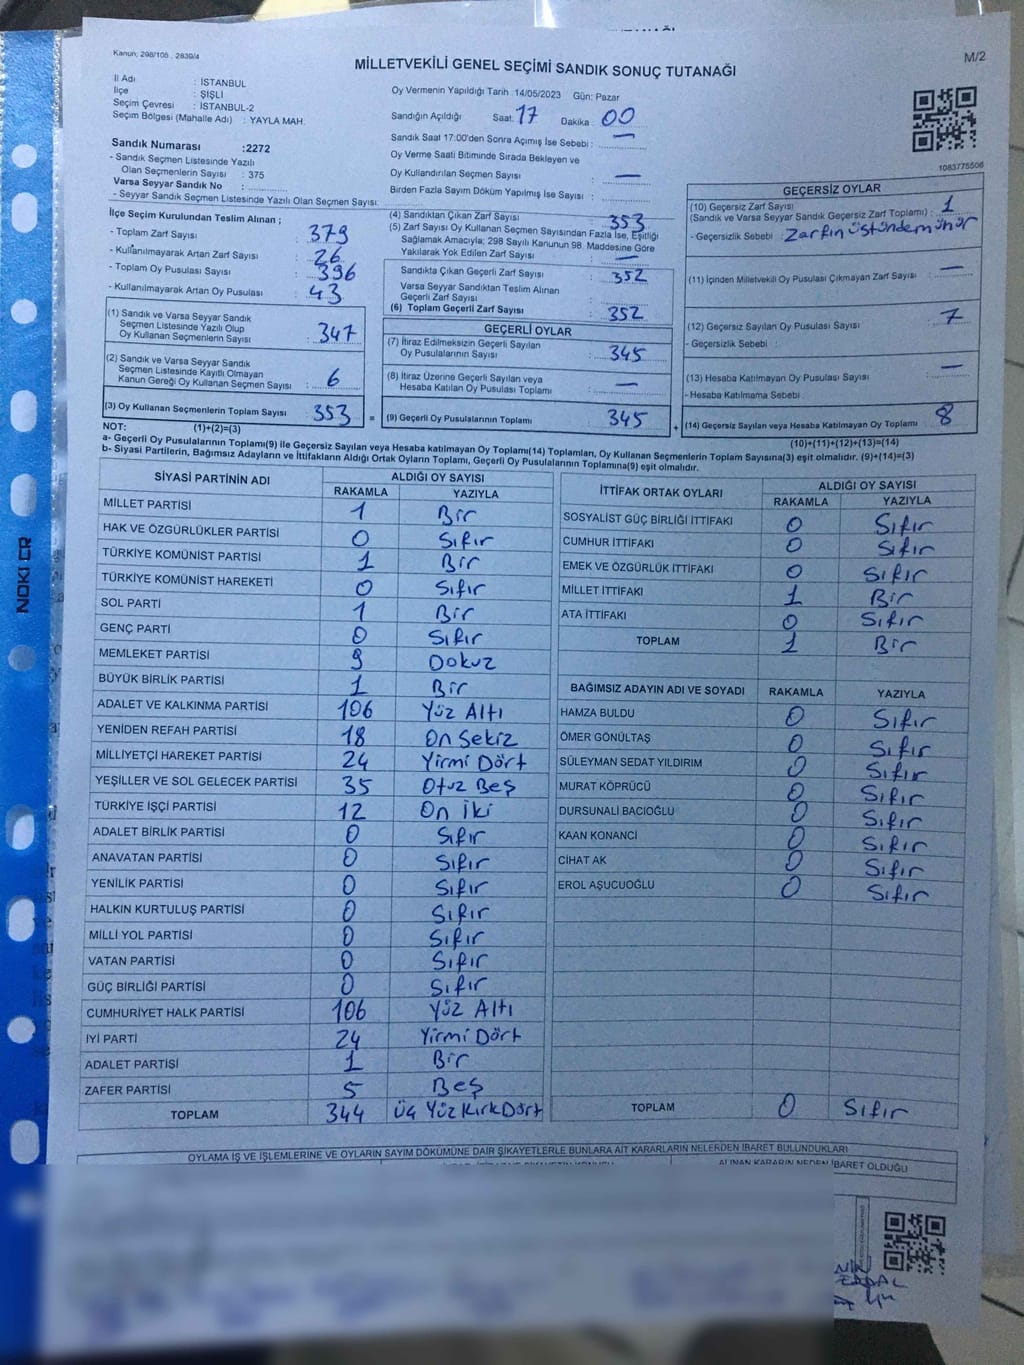 Kanun: 298/105 , 2839/4
MİLLETVEKİLİ GENEL SEÇİMİ SANDIK SONUÇ TUTANAĞI
M/2
İl Adı : İSTANBUL
İlçe : ŞİŞLİ
Seçim Çevresi : İSTANBUL-2
Seçim Bölgesi (Mahalle Adı) : YAYLA MAH.
Sandık Numarası :2272
- Sandık Seçmen Listesinde Yazılı
Olan Seçmenlerin Sayısı : 375
Varsa Seyyar Sandık No :
- Seyyar Sandık Seçmen Listesinde Yazılı Olan Seçmen Sayısı:
Oy Vermenin Yapıldığı Tarih :14/05/2023 Gün: Pazar
Sandığın Açıldığı Saat: 17 Dakika : 00
Sandık Saat 17:00'den Sonra Açımış İse Sebebi : —
Oy Verme Saati Bitiminde Sırada Bekleyen ve
Oy Kullandırılan Seçmen Sayısı : —
Birden Fazla Sayım Döküm Yapılmış İse Sayısı :
1083775506
İlçe Seçim Kurulundan Teslim Alınan ;
- Toplam Zarf Sayısı : 379
- Kullanılmayarak Artan Zarf Sayısı : 26
- Toplam Oy Pusulası Sayısı : 396
- Kullanılmayarak Artan Oy Pusulası : 43
(1) Sandık ve Varsa Seyyar Sandık
Seçmen Listesinde Yazılı Olup
Oy Kullanan Seçmenlerin Sayısı : 347
(2) Sandık ve Varsa Seyyar Sandık
Seçmen Listesinde Kayıtlı Olmayan
Kanun Gereği Oy Kullanan Seçmen Sayısı : 6
(3) Oy Kullanan Seçmenlerin Toplam Sayısı 353 =
(4) Sandıktan Çıkan Zarf Sayısı : 353
(5) Zarf Sayısı Oy Kullanan Seçmen Sayısından Fazla İse, Eşitliği
Sağlamak Amacıyla; 298 Sayılı Kanunun 98. Maddesine Göre
Yakılarak Yok Edilen Zarf Sayısı : —
Sandıkta Çıkan Geçerli Zarf Sayısı : 352
Varsa Seyyar Sandıktan Teslim Alınan
Geçerli Zarf Sayısı :
(6) Toplam Geçerli Zarf Sayısı : 352
GEÇERLİ OYLAR
(7) İtiraz Edilmeksizin Geçerli Sayılan
Oy Pusulalarının Sayısı : 345
(8) İtiraz Üzerine Geçerli Sayılan veya
Hesaba Katılan Oy Pusulası Toplamı : —
(9) Geçerli Oy Pusulalarının Toplamı : 345 +
GEÇERSİZ OYLAR
(10) Geçersiz Zarf Sayısı
(Sandık ve Varsa Seyyar Sandık Geçersiz Zarf Toplamı) : 1
- Geçersizlik Sebebi : Zarfın üstünde mühür
(11) İçinden Milletvekili Oy Pusulası Çıkmayan Zarf Sayısı : —
(12) Geçersiz Sayılan Oy Pusulası Sayısı : 7
- Geçersizlik Sebebi :
(13) Hesaba Katılmayan Oy Pusulası Sayısı : —
- Hesaba Katılmama Sebebi :
(14) Geçersiz Sayılan veya Hesaba Katılmayan Oy Toplamı : 8
NOT: (1)+(2)=(3)
(10)+(11)+(12)+(13)=(14)
a- Geçerli Oy Pusulalarının Toplamı(9) İle Geçersiz Sayılan veya Hesaba katılmayan Oy Toplamı(14) Toplamları, Oy Kullanan Seçmenlerin Toplam Sayısına(3) eşit olmalıdır. (9)+(14)=(3)
b- Siyasi Partilerin, Bağımsız Adayların ve İttifakların Aldığı Ortak Oyların Toplamı, Geçerli Oy Pusulalarının Toplamına(9) eşit olmalıdır.
SİYASİ PARTİNİN ADI ALDIĞI OY SAYISI
RAKAMLA YAZIYLA
MİLLET PARTİSİ 1 Bir
HAK VE ÖZGÜRLÜKLER PARTİSİ 0 Sıfır
TÜRKİYE KOMÜNİST PARTİSİ 1 Bir
TÜRKİYE KOMÜNİST HAREKETİ 0 Sıfır
SOL PARTİ 1 Bir
GENÇ PARTİ 0 Sıfır
MEMLEKET PARTİSİ 9 Dokuz
BÜYÜK BİRLİK PARTİSİ 1 Bir
ADALET VE KALKINMA PARTİSİ 106 Yüz Altı
YENİDEN REFAH PARTİSİ 18 On Sekiz
MİLLİYETÇİ HAREKET PARTİSİ 24 Yirmi Dört
YEŞİLLER VE SOL GELECEK PARTİSİ 35 Otuz Beş
TÜRKİYE İŞÇİ PARTİSİ 12 On İki
ADALET BİRLİK PARTİSİ 0 Sıfır
ANAVATAN PARTİSİ 0 Sıfır
YENİLİK PARTİSİ 0 Sıfır
HALKIN KURTULUŞ PARTİSİ 0 Sıfır
MİLLİ YOL PARTİSİ 0 Sıfır
VATAN PARTİSİ 0 Sıfır
GÜÇ BİRLİĞİ PARTİSİ 0 Sıfır
CUMHURİYET HALK PARTİSİ 106 Yüz Altı
İYİ PARTİ 24 Yirmi Dört
ADALET PARTİSİ 1 Bir
ZAFER PARTİSİ 5 Beş
TOPLAM 344 Üç Yüz Kırk Dört
İTTİFAK ORTAK OYLARI ALDIĞI OY SAYISI
RAKAMLA YAZIYLA
SOSYALİST GÜÇ BİRLİĞİ İTTİFAKI 0 Sıfır
CUMHUR İTTİFAKI 0 Sıfır
EMEK VE ÖZGÜRLÜK İTTİFAKI 0 Sıfır
MİLLET İTTİFAKI 1 Bir
ATA İTTİFAKI 0 Sıfır
TOPLAM 1 Bir
BAĞIMSIZ ADAYIN ADI VE SOYADI RAKAMLA YAZIYLA
HAMZA BULDU 0 Sıfır
ÖMER GÖNÜLTAŞ 0 Sıfır
SÜLEYMAN SEDAT YILDIRIM 0 Sıfır
MURAT KÖPRÜCÜ 0 Sıfır
DURSUNALİ BACIOĞLU 0 Sıfır
KAAN KONANCİ 0 Sıfır
CİHAT AK 0 Sıfır
EROL AŞUCUOĞLU 0 Sıfır
TOPLAM 0 Sıfır
OYLAMA İŞ VE İŞLEMLERİNE VE OYLARIN SAYIM DÖKÜMÜNE DAİR ŞİKAYETLERLE BUNLARA AİT KARARLARIN NELERDEN İBARET BULUNDUKLARI
ALINAN KARARIN NEDEN İBARET OLDUĞU
NOKI CR